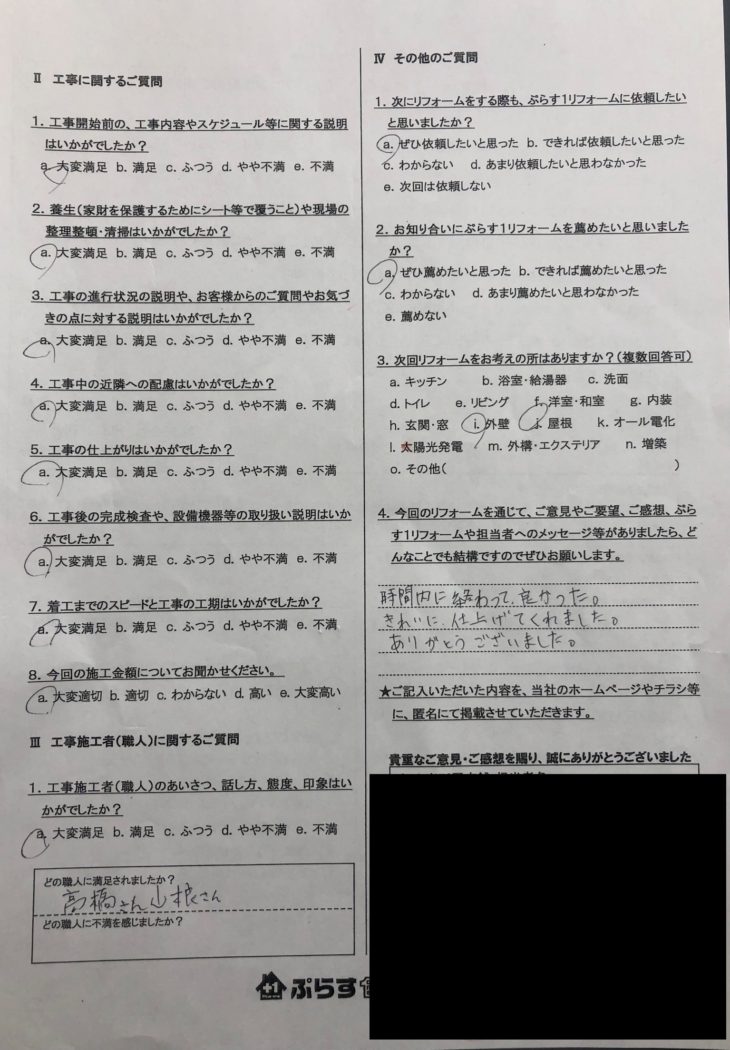 Ⅱ 工亭に関するご質問
1. 工事開始前の、工事内容やスケジュール等に関する説明
はいかがでしたか？
a. 大変満足 b. 満足 c. ふつう d. やや不満 e. 不満
2. 養生（家財を保護するためにシート等で覆うこと）や現場の
整理整頓・清掃はいかがでしたか？
a. 大変満足 b. 満足 c. ふつう d. やや不満 e. 不満
3. 工事の進行状況の説明や、お客様からのご質問やお気づ
きの点に対する説明はいかがでしたか？
a. 大変満足 b. 満足 c. ふつう d. やや不満 e. 不満
4. 工事中の近隣への配慮はいかがでしたか？
a. 大変満足 b. 満足 c. ふつう d. やや不満 e. 不満
5. 工事の仕上がりはいかがでしたか？
a. 大変満足 b. 満足 c. ふつう d. やや不満 e. 不満
6. 工事後の完成検査や、設備機器等の取り扱い説明はいか
がでしたか？
a. 大変満足 b. 満足 c. ふつう d. やや不満 e. 不満
7. 着工までのスピードと工事の工期はいかがでしたか？
a. 大変満足 b. 満足 c. ふつう d. やや不満 e. 不満
8. 今回の施工金額についてお聞かせください。
a. 大変適切 b. 適切 c. わからない d. 高い e. 大変高い
Ⅲ 工事施工者（職人）に関するご質問
1. 工事施工者（職人）のあいさつ、話し方、態度、印象はい
かがでしたか？
a. 大変満足 b. 満足 c. ふつう d. やや不満 e. 不満
どの職人に満足されましたか？
高橋さん 山根さん
どの職人に不満を感じましたか？
+1
ぷらす
Ⅳ その他のご質問
1. 次にリフォームをする際も、ぷらす1リフォームに依頼したい
と思いましたか？
a. ぜひ依頼したいと思った b. できれば依頼したいと思った
c. わからない d. あまり依頼したいと思わなかった
e. 次回は依頼しない
2. お知り合いにぷらす1リフォームを薦めたいと思いました
か？
a. ぜひ薦めたいと思った b. できれば薦めたいと思った
c. わからない d. あまり薦めたいと思わなかった
e. 薦めない
3. 次回リフォームをお考えの所はありますか？（複数回答可）
a. キッチン b. 浴室・給湯器 c. 洗面
d. トイレ e. リビング f. 洋室・和室 g. 内装
h. 玄関・窓 i. 外壁 j. 屋根 k. オール電化
l. 太陽光発電 m. 外構・エクステリア n. 増築
o. その他（ ）
4. 今回のリフォームを通じて、ご意見やご要望、ご感想、ぷら
す1リフォームや担当者へのメッセージ等がありましたら、ど
んなことでも結構ですのでぜひお願いします。
時間内に終わって、良かった。
きれいに、仕上げてくれました。
ありがとうございました。
★ご記入いただいた内容を、当社のホームページやチラシ等
に、匿名にて掲載させていただきます。
貴重なご意見・ご感想を賜り、誠にありがとうございました